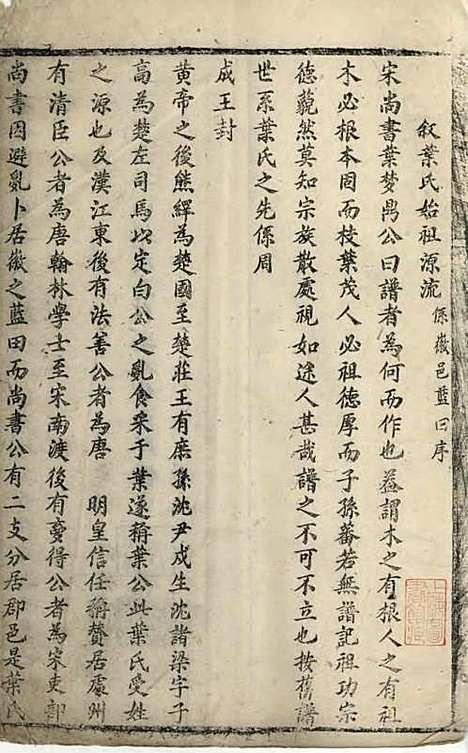 叙葉氏始祖源流 係徽邑藍田序
宋尚書葉夢鼎公曰譜者為何而作也葢謂木之有根人之有祖
木必根本固而枝葉茂人必祖德厚而子孫蕃若無譜記祖功宗
德藐然莫知宗族散處視如途人甚哉譜之不可不立也按舊譜
世系葉氏之先係周
成王封
黄帝之後熊繹為楚國至楚莊王有庶孫沈尹戍生沈諸梁字子
高為楚左司馬以定白公之亂食采于葉遂稱葉公此葉氏受姓
之源也及漢江東後有法善公者為唐 明皇信任稱贊居處州
有清臣公者為唐翰林學士至宋南渡後有夢得公者為宋吏部
尚書因避亂卜居徽之藍田而尚書公有二支分居郡邑是葉氏